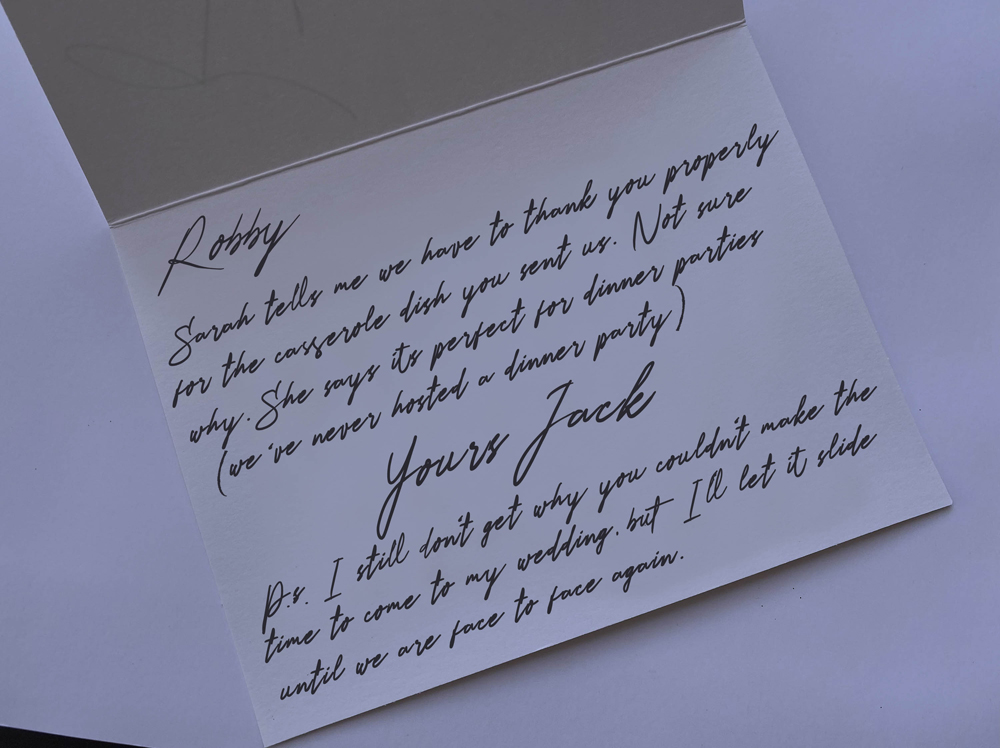 Robby
Sarah tells me we have to thank you properly
for the casserole dish you sent us. Not sure
why. She says its perfect for dinner parties
(we've never hosted a dinner party)
Yours Jack
P.s. I still don't get why you couldn't make the
time to come to my wedding, but I'll let it slide
until we are face to face again.